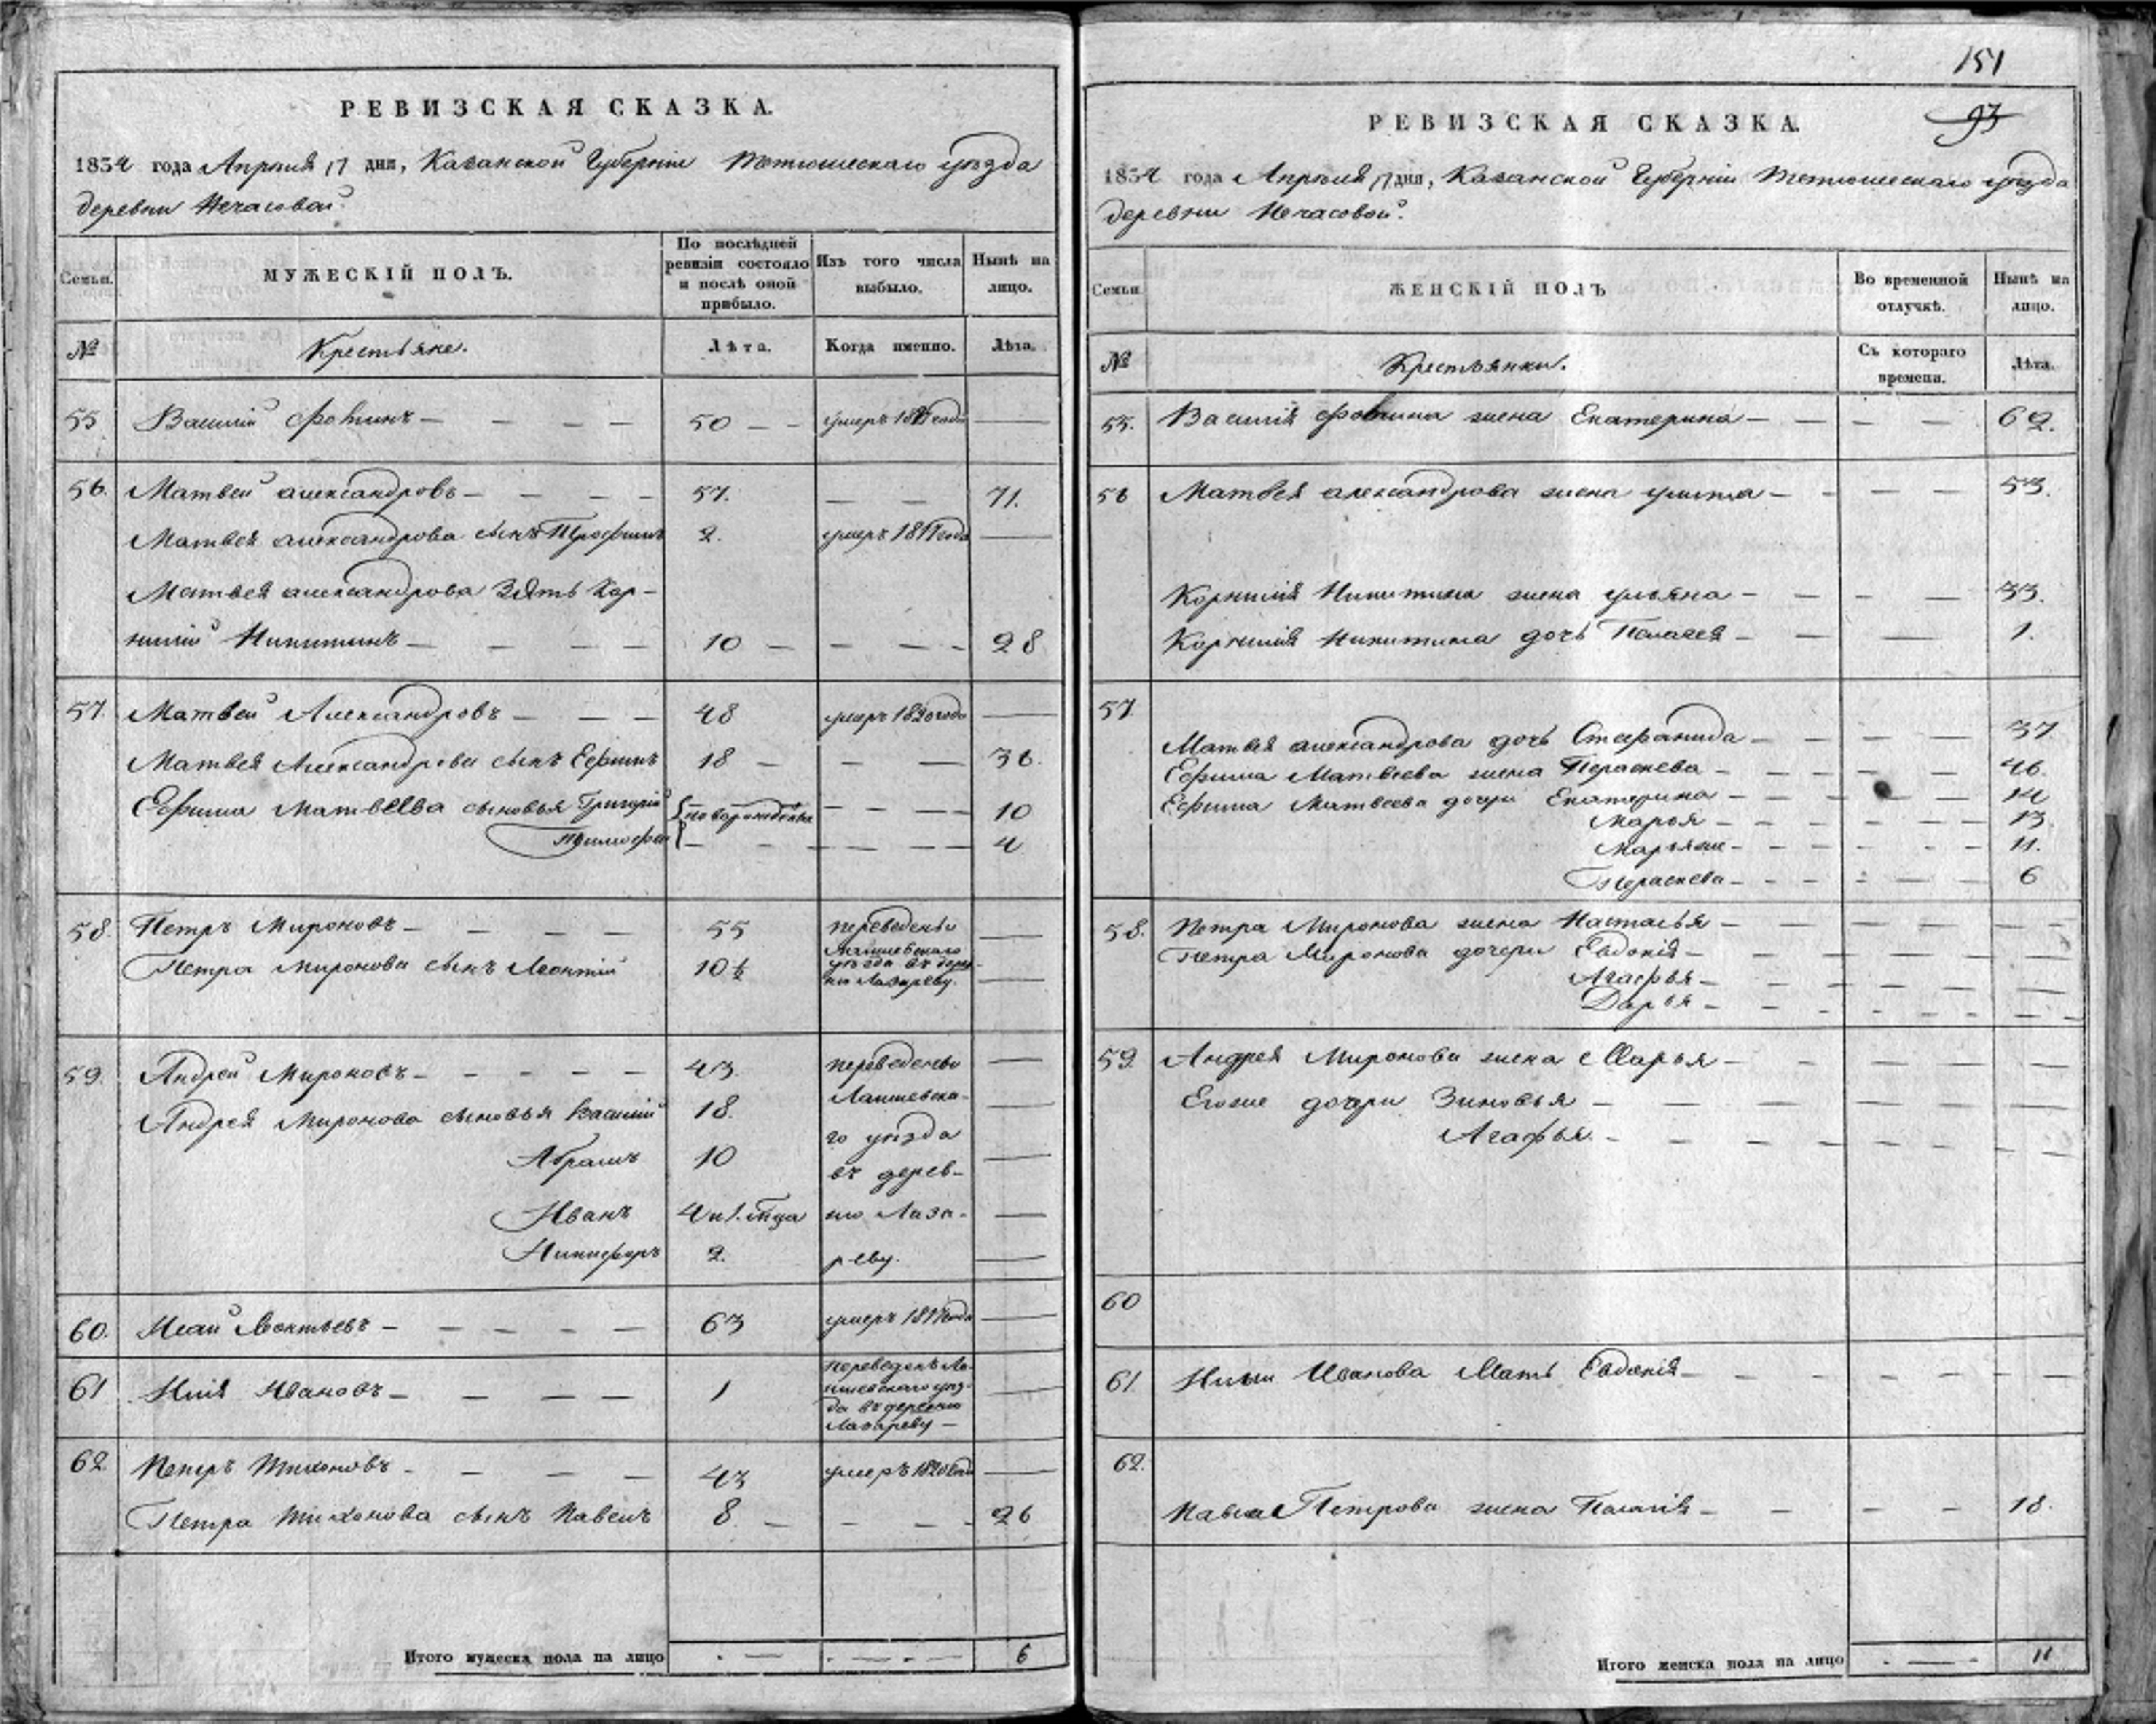 РЕВИЗСКАЯ СКАЗКА.
1834 года Апреля 17 дня, Казанской Губернии Тетюшескаго уезда
деревни Нечасовой.
Семьи.
МУЖЕСКІЙ ПОЛЪ.
По послѣдней ревизіи состояло и послѣ оной прибыло.
Изъ того числа выбыло.
Нынѣ на лицо.
№
Крестьяне.
Лѣта.
Когда именно.
Лѣта.
55 Василий Фокинъ — 50 — умеръ года —
56. Матвей Александровъ — 57. — — 71.
Матвея Александрова сынъ Трофимъ 2. умеръ года —
Матвея Александрова Зять Кор-
нилий Никитинъ — 10 — — 28
57. Матвей Александровъ — 48 умеръ 1820 года —
Матвея Александрова сынъ Ефимъ 18 — — 36.
Ефима Матвеева сыновья Григорий новорожденны — 10
Тимофей — 4
58. Петръ Мироновъ — 55 переведены —
Петра Миронова сынъ Леонтий 10½ Лаишевскаго уезда въ дерев-
ню Лазареву. —
59. Андрей Мироновъ — 43. переведены —
Андрея Миронова сыновья Василий 18. Лаишевска- —
го уезда
Абрамъ 10 въ дерев- —
Иванъ 4 и 1. м-ца ню Лаза- —
Никифоръ 2. реву. —
60. Исай Леонтьевъ — 63 умеръ года —
61 Илія Ивановъ — 1 переведенъ Ла-
ишевскаго уез-
да въ деревню
Лазареву —
62. Петръ Тихоновъ — 43 умеръ года —
Петра Тихонова сынъ Павелъ 8 — — 26
Итого мужеска пола на лицо — — 6
151
93
РЕВИЗСКАЯ СКАЗКА.
1834 года Апреля 17 дня, Казанской Губернии Тетюшескаго уезда
деревни Нечасовой.
Семьи.
ЖЕНСКІЙ ПОЛЪ
Во временной отлучкѣ.
Нынѣ на лицо.
№
Крестьянки.
Съ котораго времени.
Лѣта.
55. Василія Фокина жена Екатерина — — 62.
56 Матвея Александрова жена — — 53.
Корнилія Никитина жена Ульяна — — 33.
Корнилія Никитина дочь Пелагея — — 1.
57.
Матвея Александрова дочь Стефанида — — 37
Ефима Матвеева жена Параскева — — 46.
Ефима Матвеева дочери Екатерина — — 14
Марья — — 13.
— — 11.
Параскева — — 6
58. Петра Миронова жена Настасья — —
Петра Миронова дочери Евдокія — —
Агафья — —
Дарья — —
59. Андрея Миронова жена Марья — —
Егоже дочери Зиновья — —
Агафья. — —
60
61. Ильи Иванова Мать Евдокія — —
62.
Павла Петрова жена Пелагія — — 18.
Итого женска пола на лицо — 11